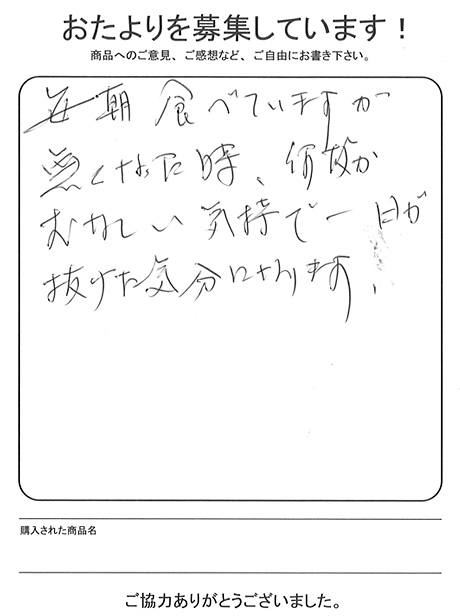 おたよりを募集しています！
商品へのご意見、ご感想など、ご自由にお書き下さい。
毎朝食べていますが
無くなった時、何故か
むなしい気持で一日が
抜けた気分になります、
購入された商品名
ご協力ありがとうございました。